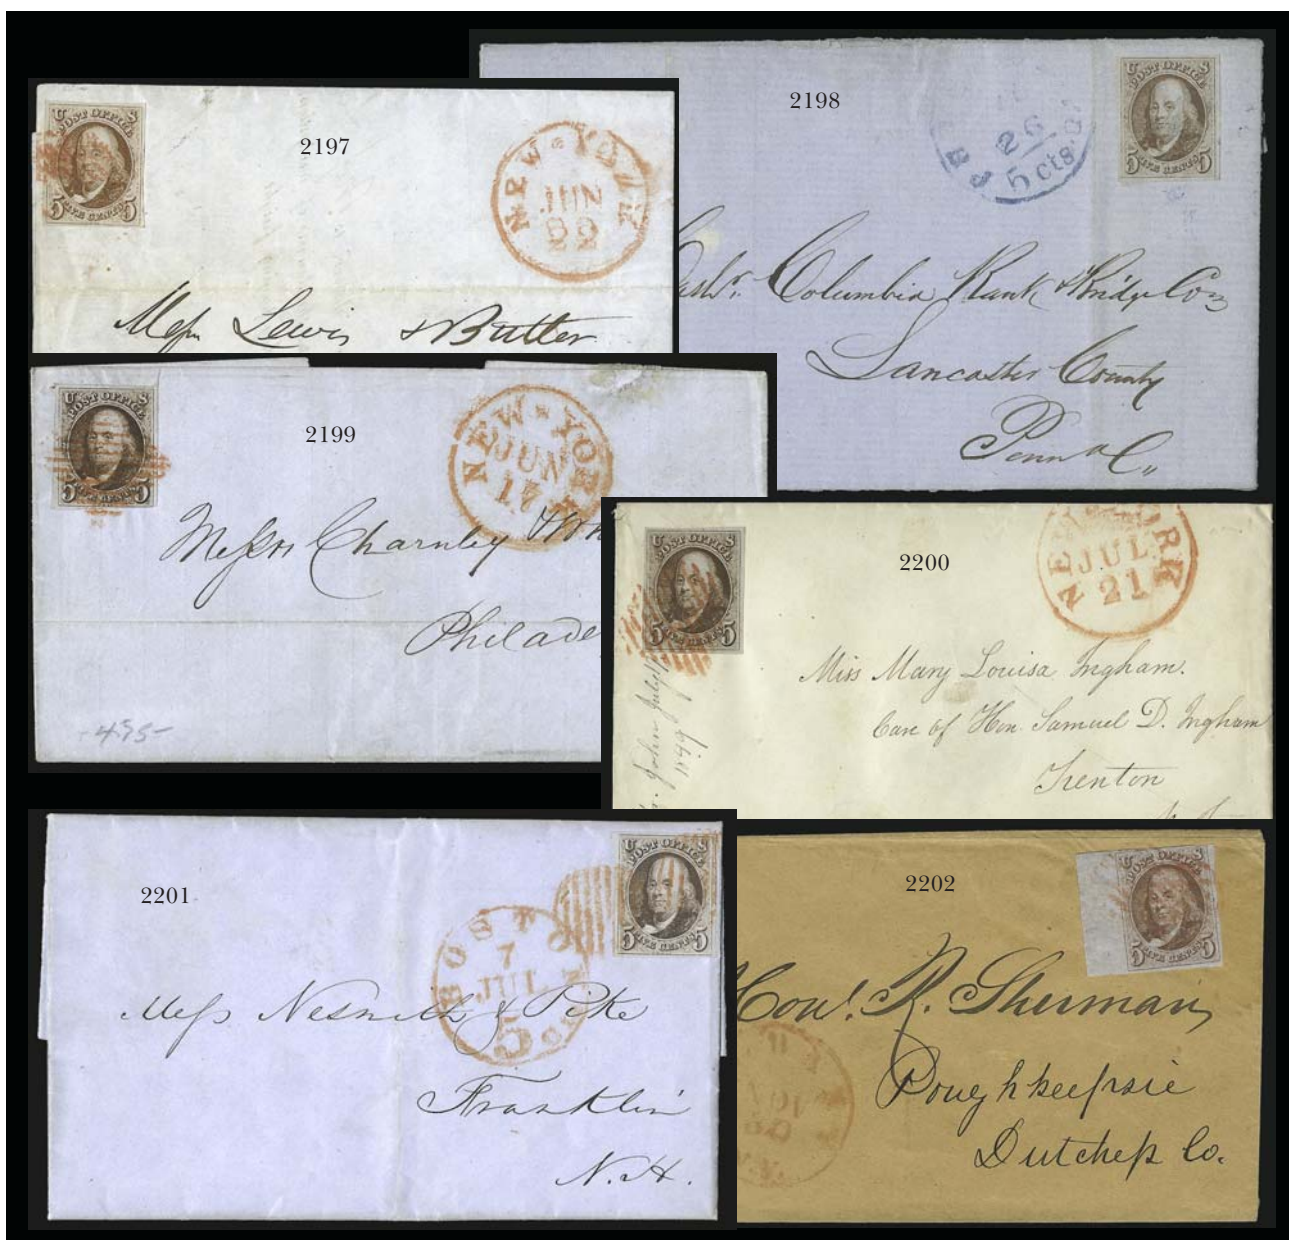 2197
U S
POST OFFICE
5 FIVE CENTS 5
NEW YORK
JUN
22
Mess Lewis & Butler
2198
U S
POST OFFICE
5 FIVE CENTS 5
26
5 cts
Cashr. Columbia Bank & Bridge Com
Lancaster County
Penna
2199
U S
POST OFFICE
5 FIVE CENTS 5
NEW YORK
JUN
17
Messrs Charnley &
Philade
-475-
2200
U S
POST OFFICE
5 FIVE CENTS 5
NEW YORK
JUL
21
Miss Mary Louisa Ingham.
Care of Hon. Samuel D. Ingham
Trenton
John July
1849
2201
U S
POST OFFICE
5 FIVE CENTS 5
BOSTON
7
JUL
5 cts
Mess Nesmith & Pike
Franklin
N.H.
2202
U S
POST OFFICE
5 FIVE CENTS 5
Honl. R. Sherman
Poughkeepsie
Dutchess Co.